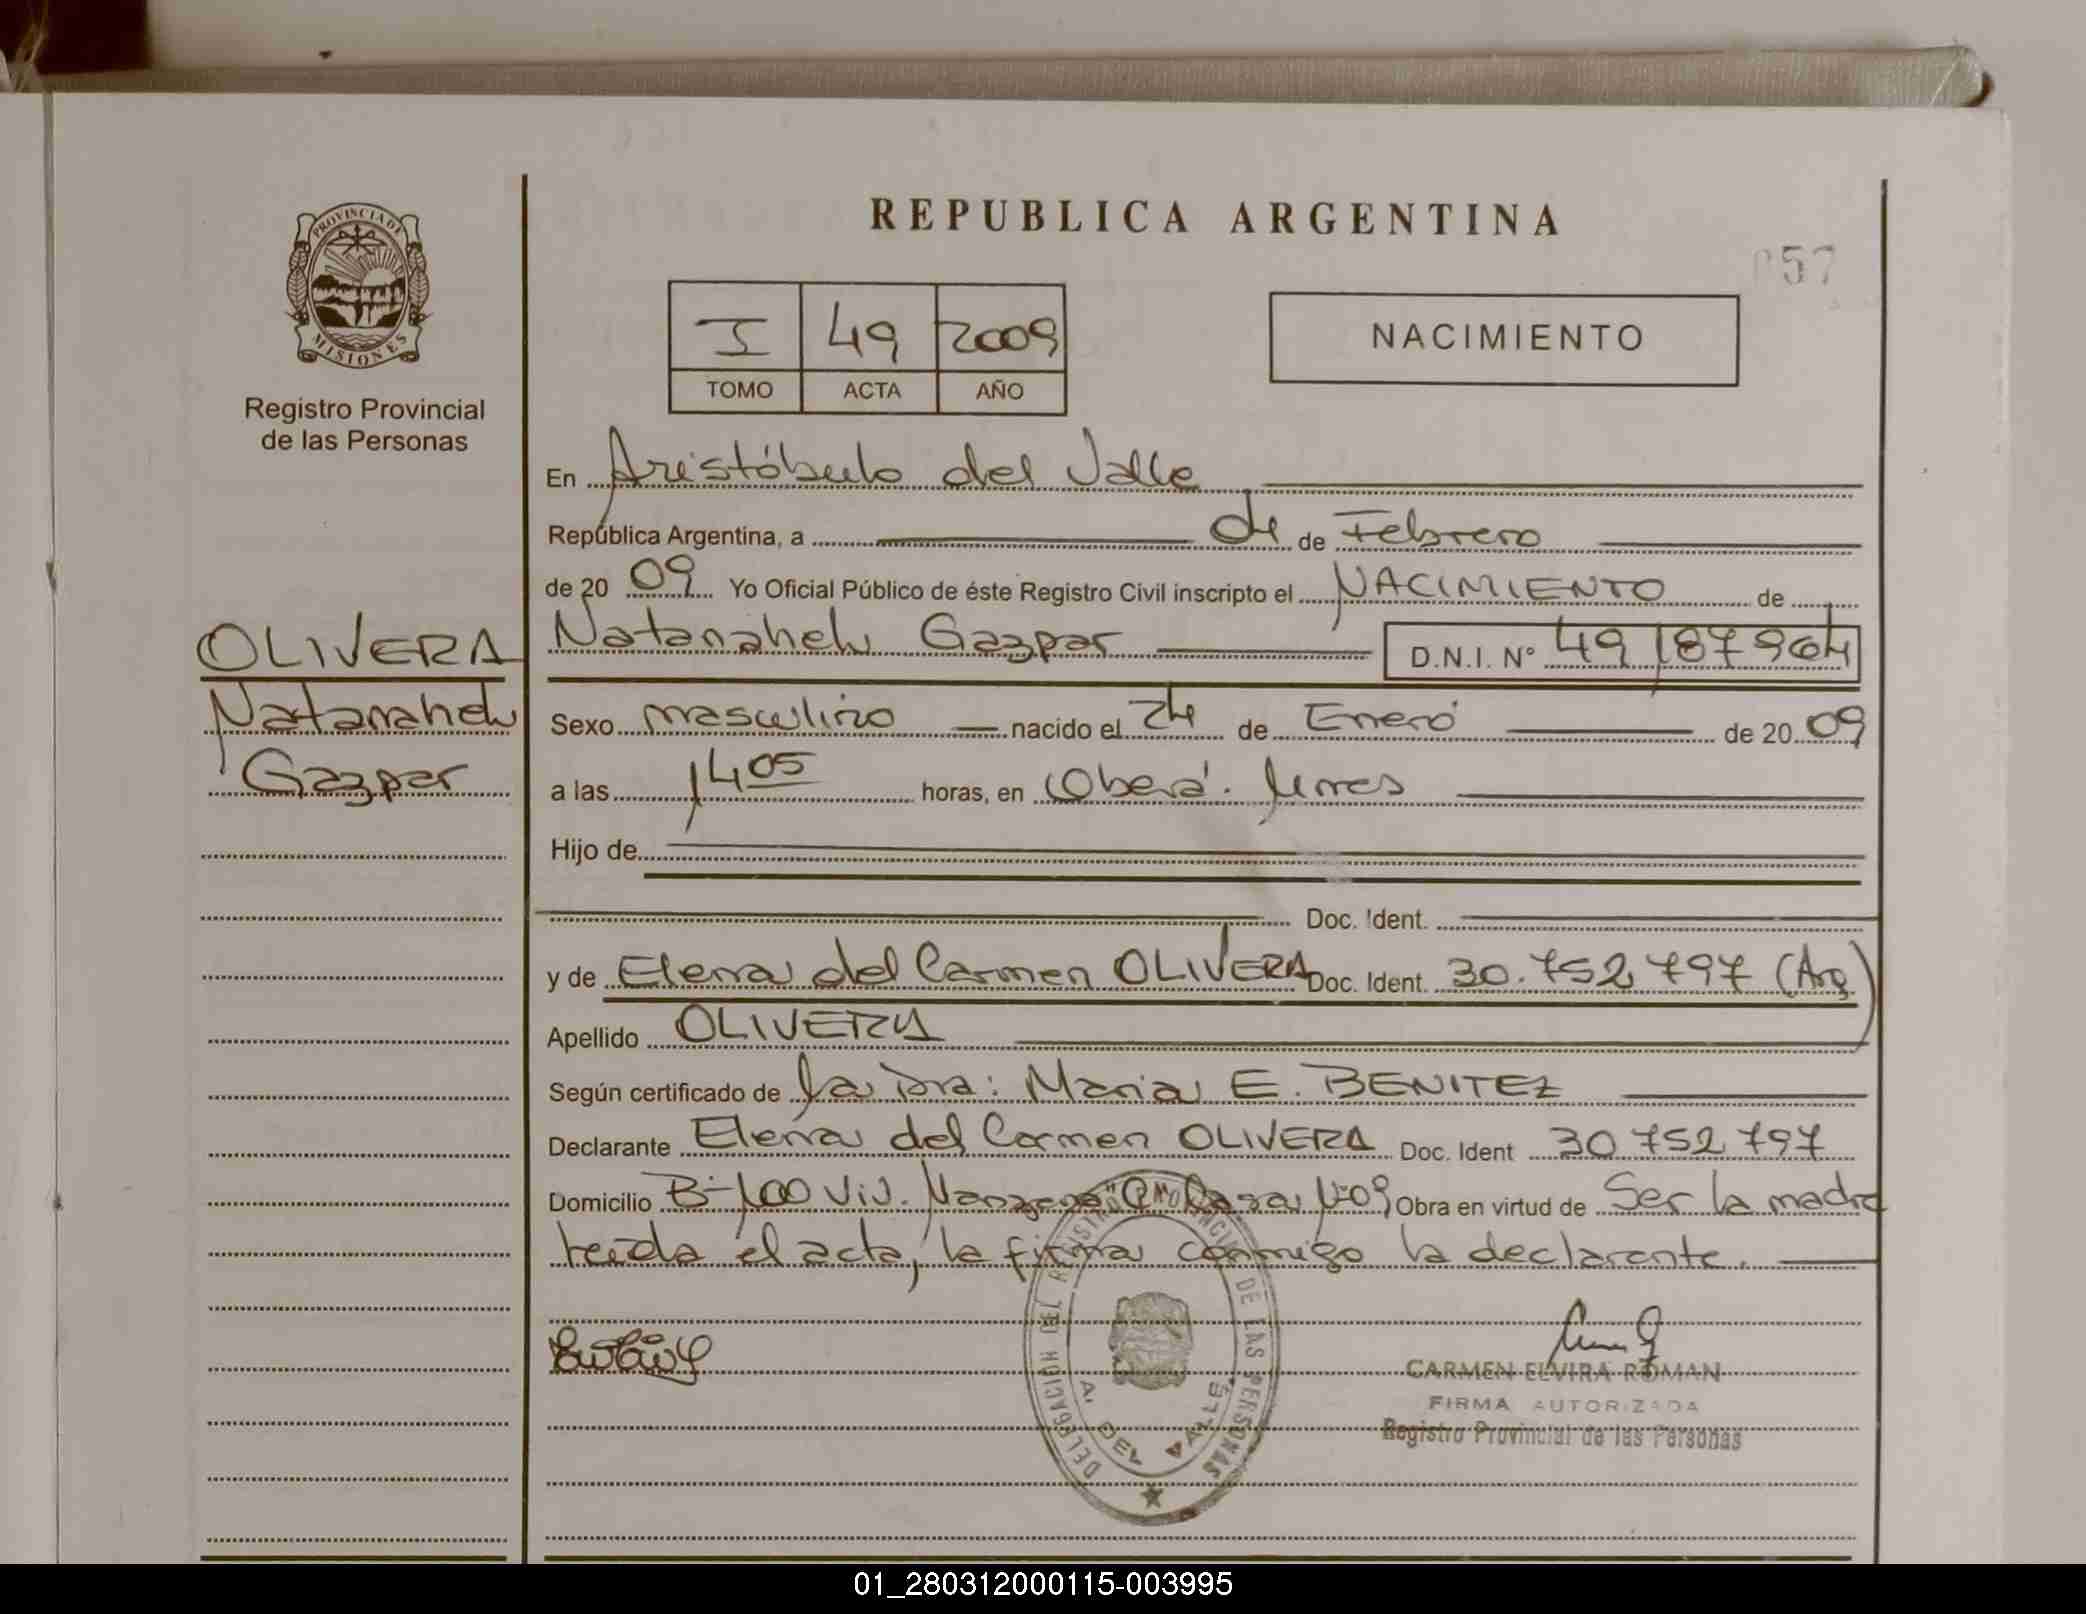 PROVINCIA DE
MISIONES
Registro Provincial
de las Personas
OLIVERA
Natanahel
Gazpar
REPUBLICA ARGENTINA
057
I 49 2009
TOMO ACTA AÑO
NACIMIENTO
En Aristóbulo del Valle
República Argentina, a 04 de Febrero
de 20 09 Yo Oficial Público de éste Registro Civil inscripto el NACIMIENTO de
Natanahel Gazpar D.N.I. Nº 49187964
Sexo masculino nacido el 24 de Enero de 20 09
a las 14 05 horas, en Oberá. Mnes
Hijo de
Doc. Ident.
y de Elena del Carmen OLIVERA Doc. Ident. 30.752797 (Arg)
Apellido OLIVERA
Según certificado de la Dra: Maria E. BENITEZ
Declarante Elena del Carmen OLIVERA Doc. Ident 30752797
Domicilio Bº 100 Viv. Manzana Casa Nº 09 Obra en virtud de Ser la madre
leída el acta, la firma conmigo la declarante.
DELEGACION DEL REGISTRO PROVINCIAL DE LAS PERSONAS
A. DEL VALLE
CARMEN ELVIRA ROMAN
FIRMA AUTORIZADA
Registro Provincial de las Personas
01_280312000115-003995